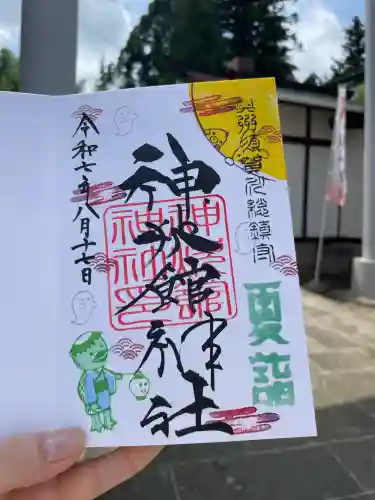 奥州須賀川総鎮守
夏詣
神炊館神社
神炊館
神社印
令和七年八月十七日